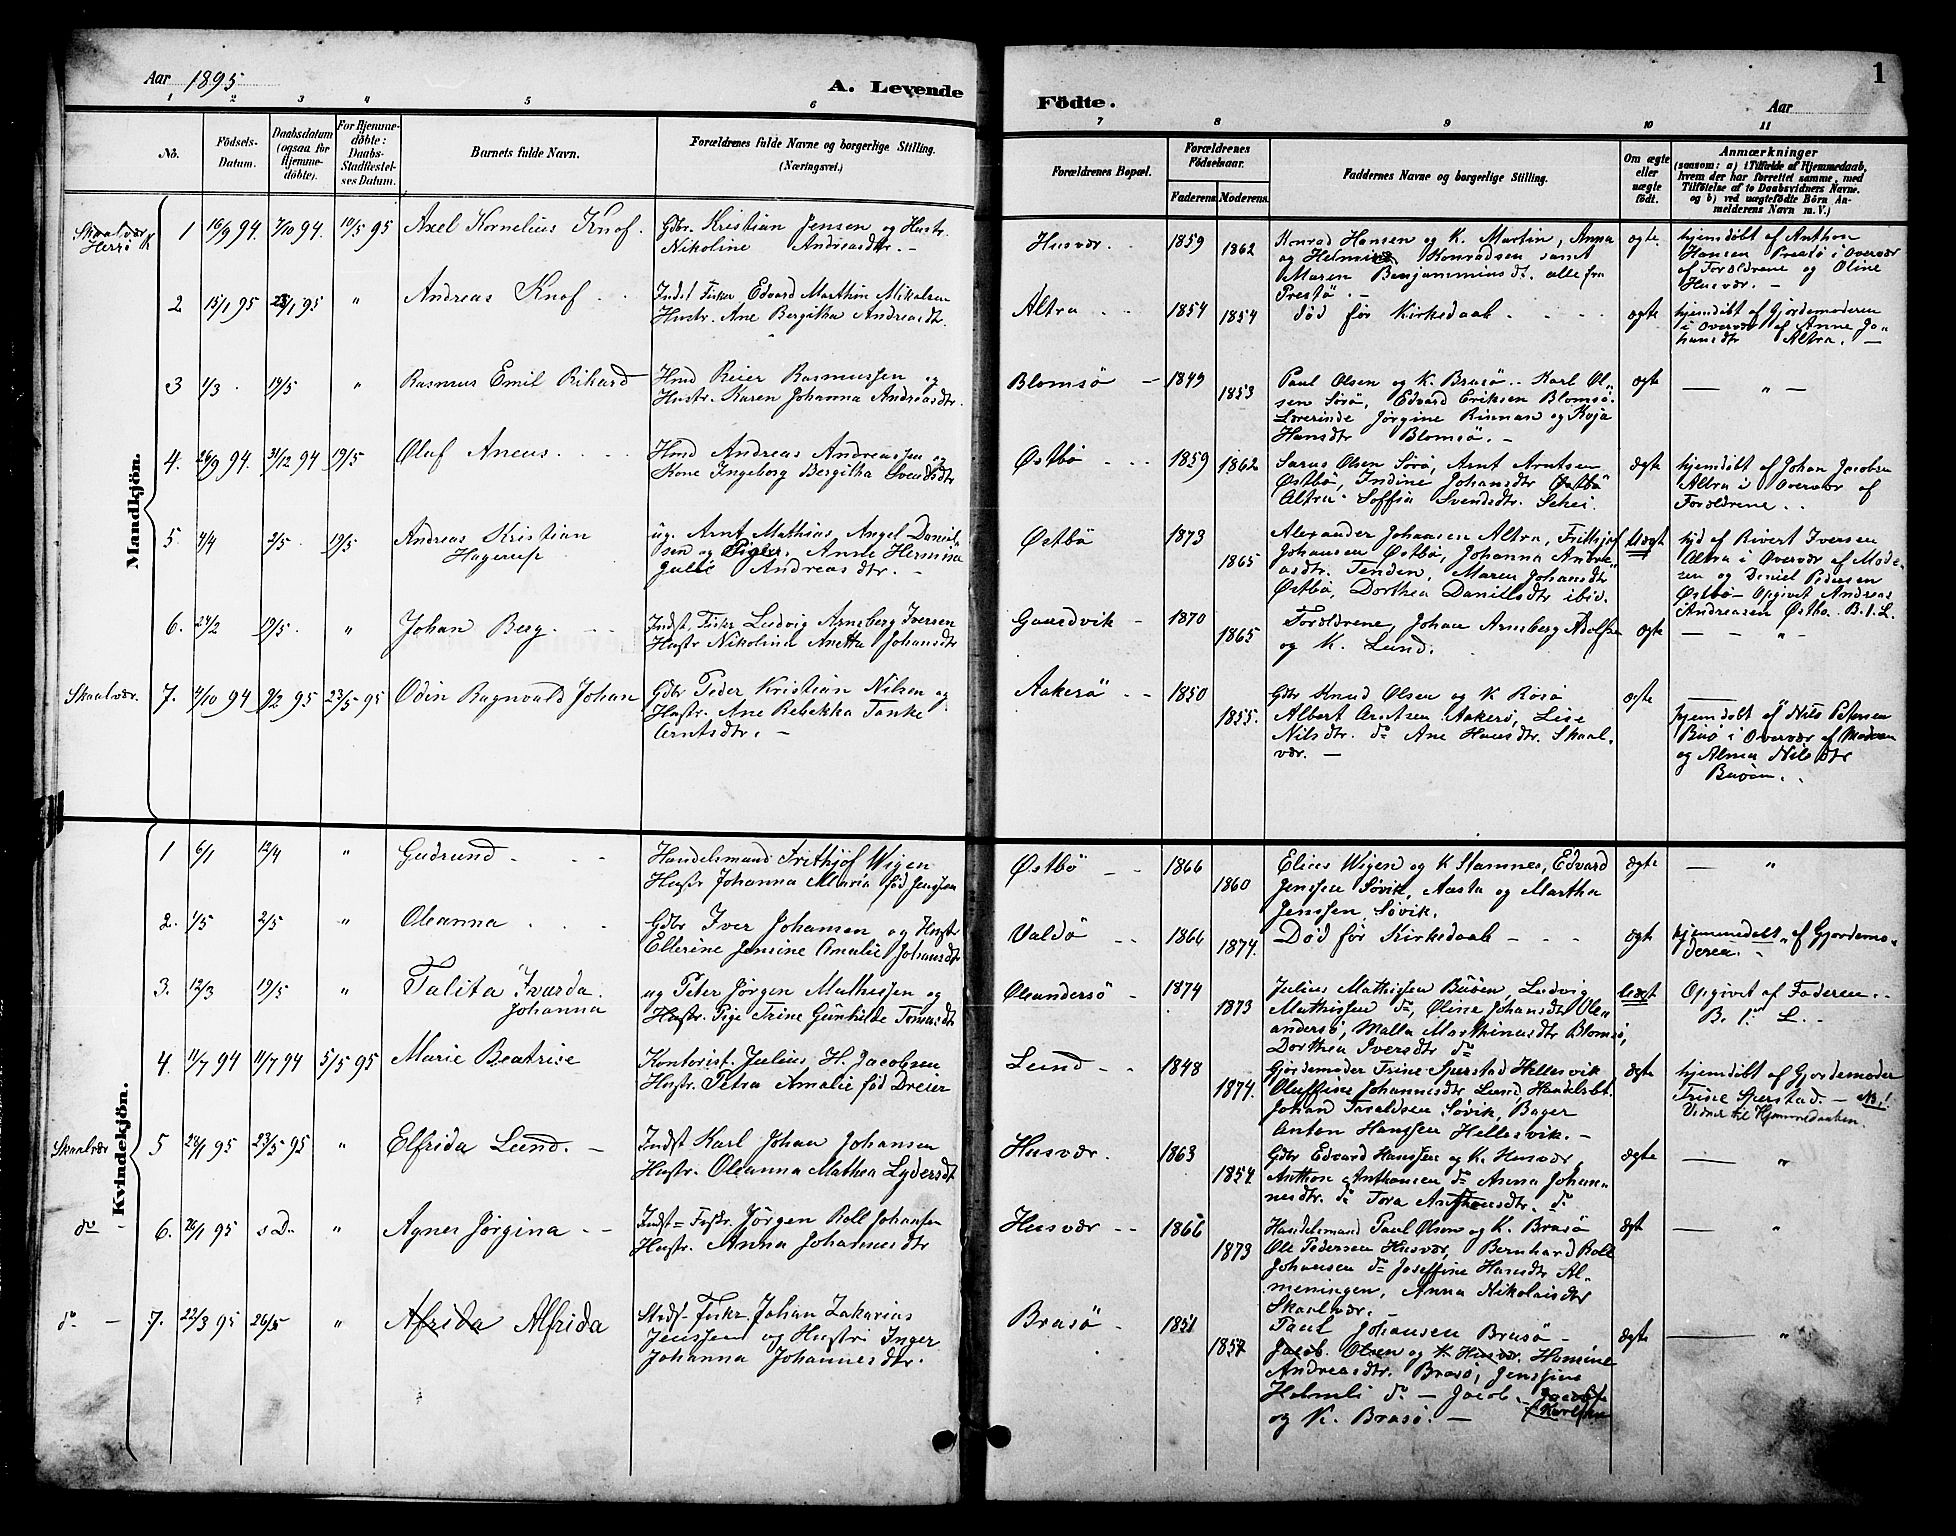 Aar 1895
A. Levende
Födte.
Aar
1
1
2
3
4
5
6
7
8
9
10
11
No.
Födsels-
Datum.
Daabsdatum
(ogsaa for
Hjemme-
döbte).
For Hjemme-
döbte:
Daabs-
Stadfæstel-
ses Datum.
Barnets fulde Navn.
Forældrenes fulde Navne og borgerlige Stilling.
(Næringsvei.)
Forældrenes Bopæl.
Forældrenes
Födselsaar.
Faderens.
Moderens.
Faddernes Navne og borgerlige Stilling.
Om ægte
eller
uægte
födt.
Anmærkninger
(saasom: a) i Tilfælde af Hjemmedaab,
hvem der har forrettet samme, med
Tilföielse af to Daabsvidners Navne.
og b) ved uægtefödte Börn An-
melderens Navn m. V.)
Mandkjön.
Skaalvær
Herrø
1 16/9 94. 7/10 94. 12/5 95 Axel Kornelius Knof. Gdbr. Kristian Jensen og Hustr.
Nikoline Andreasdtr. —
Husvær. 1859 1862
Konrad Hansen og K. Martin, Anna
og Helmine Konradsen samt
Maren Benjaminsdt. alle fra
Prestö. —
ægte.
hjemdöbt af Anthon
Hansen Prestö i Overvær
af Foræeldrene og Oline
Husvær. —
2 15/1 95 23/1 95 " Andreas Knof. Indst Fisker, Edvard Marthin Mikalsen
Hustr. Ane Bergitha Andreasdt.
Altra 1854 1854 död før Kirkedaab ægte
hjemdöbt af Gjordemoderen
i Overvær af Anne Jo-
hansdtr Altra. —
3 1/3 19/5 " Rasmus Emil Rikard Hmd Reier Rasmussen og
Hustr. Karen Johanna Andreasdtr.
Blomsö — 1849 1853
Paul Olsen og K. Brasö. Karl Ol-
sen Sörö, Edvard Eriksen Blomsö.
Lærerinde Jörgine Rinnan og Kaja
Hansdtr Blomsö. —
ægte — " —
4. 26/9 94. 31/12 94 19/5 Oluf Aneus. Hmd Andreas Andreassen og
Kone Ingeborg Bergitha Svendsdtr
Østbö 1859 1862
Sarus Olsen Sörö, Arnt Arntsen
Østbö, Indine Johansdtr Østbö
Altra Soffia Svendsdtr. Sekei.
ægte
hjemdöbt af Johan Jacobsen
Altra i Overvær af
Forældrene.
5. 4/4 2/5 19/5 Andreas Kristian
Hagerup
ug. Arnt Mathias Angel Daniel-
sen og Pige, Anne Hermina
Julie Andreasdtr. —
Østbö 1873 1865
Alexander Johansen Altra, Frithjof
Johansen Østbö, Johanna Andre-
asdtr. Tenden, Maren Johansdtr
Østbö, Dorthea Danielsdtr ibid.
Uægt
hjd af Rivert Iversen
Altra i Overvær af Mode-
ren og Daniel Pedersen
Østbö — Opgivet Andreas
Andreasen Østbö. B. 1. L.
6. 24/2 19/5. " Johan Berg. Indst Fisker Ludvig Arnsberg Iversen
Hustr Nikolina Anetta Johansdtr
Gaasdvik — 1870 1865
Forældrene, Johan Arnsberg Adolfsen
og K. Lund.
ægte — " —
Skaalvær. 7. 4/10 94 9/2 95 23/5 95 Odin Ragnvald Johan Gdbr Peder Kristian Nilsen og
Hustr. Ane Rebekka Tanke
Arntsdtr. —
Aakerö 1850 1855.
Gdbr Knud Olsen og K Rösö
Albert Arntsen Aakerö, Lise
Nilsdtr. do Ane Hansdtr. Skaal-
vær. —
ægte
hjemdöbt af Nils Petersen
Buö i Overvær af Moderen
og Alma Nilsdtr
Buöen.
Kvindekjön.
1 6/1 12/4 " Gudrund Handelsmand Frithjof Wigen
Hustr Johanna Maria föd Jenssen
Østbö 1866 1860
Elias Wigen og K Stamnes, Edvard
Jenssen Søvik, Aasta og Martha
Jenssen, Søvik.
ægte — "
2. 1/5 2/5 " Oleanna Gdbr Iver Johansen og Hustr
Ellerine Jensine Amalie Johansdt
Valdö 1866 1874. Död för Kirkedaab ægte
hjemmedöbt af Gjordemo-
deren.
3. 12/3 19/5 " Talita Ivarda
Johanna
ug Peter Jörgen Mathissen og
Hustr. Pige Trine Gunhilde Tomasdt
Oleandersö — 1874 1873
Julius Mathissen Buöen, Ludvig
Mathissen do, Oline Johansdtr Ole-
andersö, Malla Marthinusdtr Blomsö,
Dorthea Iversdtr do
Uægt Opgivet af Faderen.
B. 1. L.
4. 11/7 94 11/7 94 5/5 95 Marie Beatrise Kontorist Julius H. Jacobsen
Hustr. Petra Amalie föd Dreier
Lund 1848 1874.
Gjordemoder Trine Sperstad Hellesvik
Oluffine Johannesdtr Lund, Handelsbt.
Johan Tvraldsen Søvik, Bager
Anton Hanssen Hellesvik. —
ægte
hjemdöbt af Gjordemoder
Trine Sperstad. — NB!
Vidner til Hjemmedaaben.
Skaalvær 5 22/1 95 23/5 95 " Elfrida Lund. — Indst Karl Johan Johansen
Hustr. Oleanna Mathea Lydersdt
Husvær. 1863 1854
Gdbr Edvard Hanssen og K. Husvær,
Anthon Anthonsen do Anna Johan-
nesdtr. do Tora Anthonsdtr. do
ægte — "
do — 6. 26/1 95 s D. " Agnes Jørgina — Indst = Fiskr. Jörgen Roll Johansen
Hustr. Anna Johannesdtr
Husvær 1866 1873
Handelsmand Paul Olsen og K. Brasö
Ole Pedersen Husvær, Bernhard Roll
Johansen do Joseffine Hansdtr Al-
meningen, Anna Nikolaisdtr
Skaalvær. —
ægt — "
do — 7. 22/3 95 26/5 " Afrida Alfrida Indst- Fiskr Johan Zakarias
Jenssen og Hustr. Inger
Johanna Johannesdtr.
Brasö 1851 1857
Paul Johansen Brasö —
Jacob Olsen og K. Husvær. Homine
Andreasdtr. Brasö, Jenssine
Holmeli do — Jacob Jacobsen
Karlsen
og K. Brasö. —
ægte — "